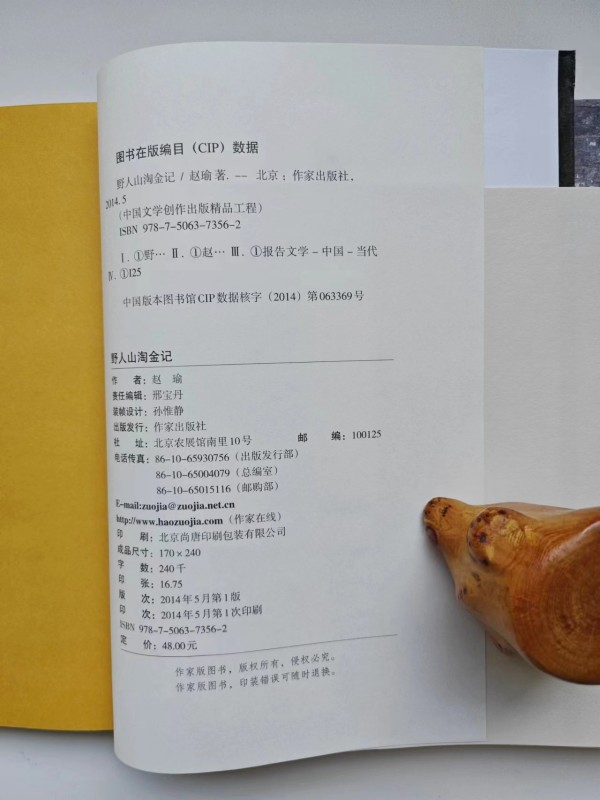 图书在版编目（CIP）数据
野人山淘金记 / 赵瑜著. -- 北京：作家出版社，
2014.5
（中国文学创作出版精品工程）
ISBN 978-7-5063-7356-2
Ⅰ. ①野… Ⅱ. ①赵… Ⅲ. ①报告文学－中国－当代
Ⅳ. ①I25
中国版本图书馆CIP数据核字（2014）第063369号
野人山淘金记
作 者：赵 瑜
责任编辑：邢宝丹
装帧设计：孙惟静
出版发行：作家出版社
社 址：北京农展馆南里10号 邮 编：100125
电话传真：86-10-65930756（出版发行部）
86-10-65004079（总编室）
86-10-65015116（邮购部）
E-mail:zuojia@zuojia.net.cn
http://www.haozuojia.com（作家在线）
印 刷：北京尚唐印刷包装有限公司
成品尺寸：170×240
字 数：240千
印 张：16.75
版 次：2014年5月第1版
印 次：2014年5月第1次印刷
ISBN 978-7-5063-7356-2
定 价：48.00元
作家版图书，版权所有，侵权必究。
作家版图书，印装错误可随时退换。